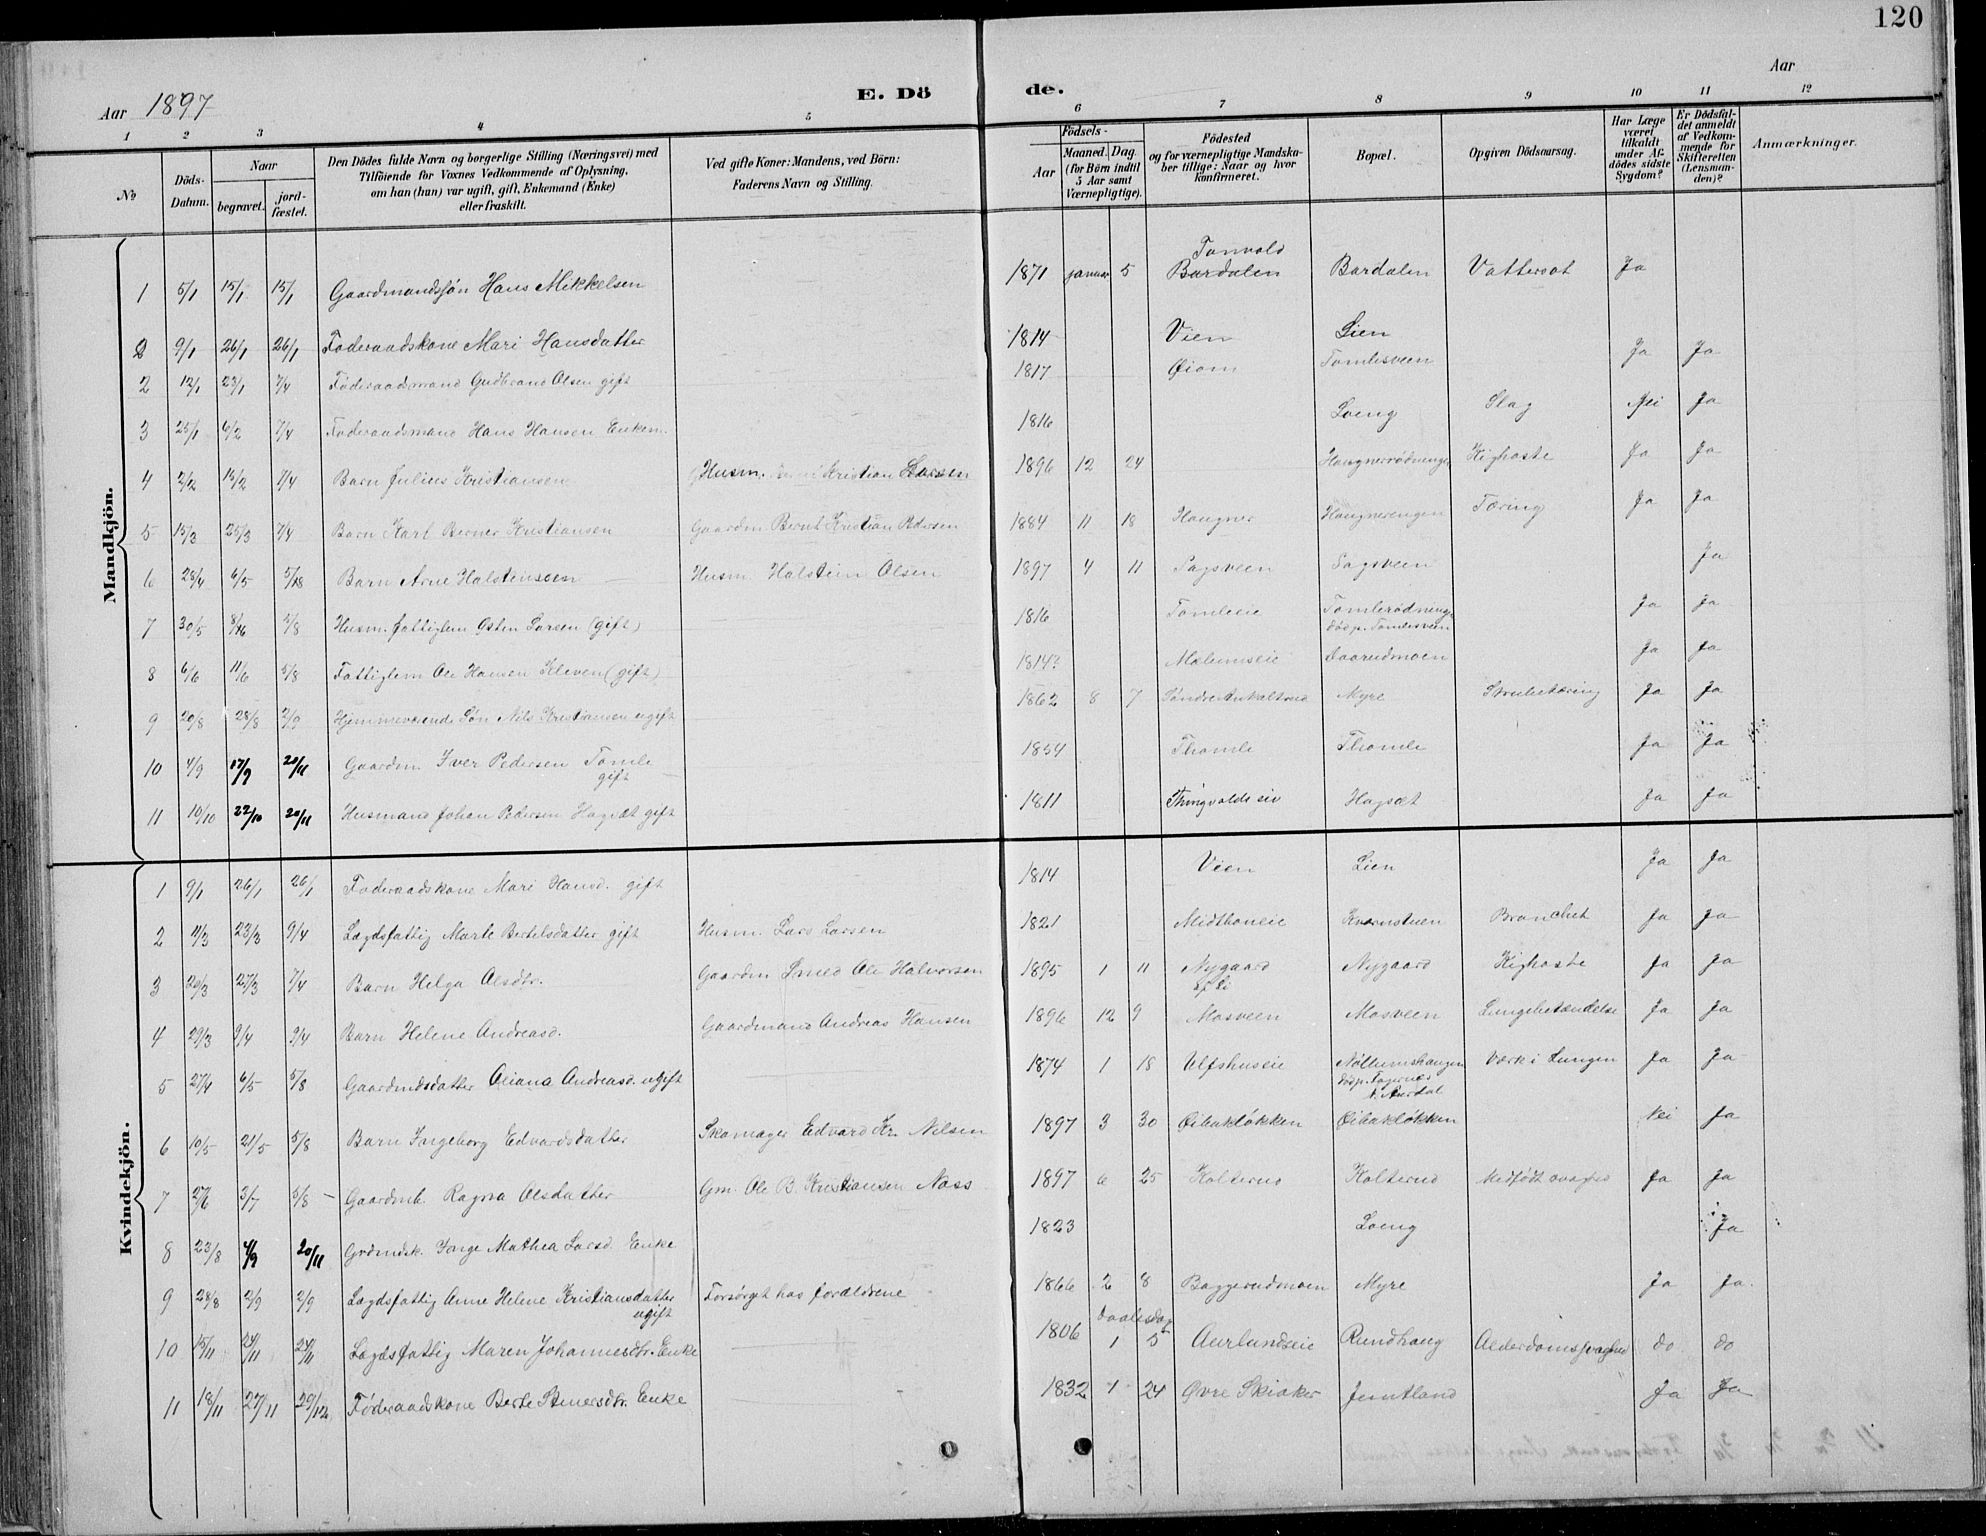 120
Aar 1897
E. Dö
de.
Aar
1 2 3 4 5 6 7 8 9 10 11 12
No
Döds-Datum.
Naar
begravet.
jord-fæstet.
Den Dödes fulde Navn og borgerlige Stilling (Næringsvei) med
Tilföiende for Voxnes Vedkommende af Oplysning,
om han (hun) var ugift, gift, Enkemand (Enke)
eller fraskilt.
Ved gifte Koner: Mandens, ved Börn:
Faderens Navn og Stilling.
Födsels-
Aar
Maaned. Dag.
(for Börn indtil
5 Aar samt
Værnepligtige).
Födested
og for værnepligtige Mandska-
ber tillige: Naar og hvor
konfirmeret.
Bopæl.
Opgiven Dödsaarsag.
Har Læge
været
tilkaldt
under Af-
dödes sidste
Sygdom?
Er Dödsfal-
det anmeldt
af Vedkom-
mende for
Skifteretten
(Lensman-
den)?
Anmærkninger.
Mandkjön.
1 5/1 15/1 15/1 Gaardmandssøn Hans Mikkelsen 1871 januar 5 Tonvold Bardalen Bardalen Vattersot Ja
2 9/1 26/1 26/1 Føderaadskone Mari Hansdatter 1814 Vien Lien
2 12/1 23/1 7/4 Føderaadsmand Gudbrand Olsen gift 1817 Øiom Tomlesveen Ja Ja
3 25/1 6/2 7/4 Føderaadsmand Hans Hansen Enkem. 1816 Loeng Slag Nei Ja
4 2/2 15/2 7/4 Barn Julius Kristiansen Husm. Kristian Larsen 1896 12 24 Kighoste Ja Ja
5 15/3 25/3 7/4 Barn Karl Berner Kristiansen Gaardm Bernt Kristian Pedersen 1884 11 18 Haugner Haugnerengen Tæring Ja Ja
6 28/4 6/5 5/8 Barn Arne Halstensen Husm. Halstein Olsen 1897 4 11 Sagsveen Sagsveen Ja
7 30/5 8/6 5/8 Husm. fattiglem Østen Larsen (gift) 1816 Tomleeie Tomlerødningen
dødp. Tomlesveen Ja Ja
8 6/6 11/6 5/8 Fattiglem Ole Hansen Kleven (gift) 1814? Mælumseie Ja Ja
9 20/8 28/8 2/9 Hjemmeværende Søn Nils Kristiansen ugift 1862 8 7 Søndre Myre Strubetæring Ja Ja
10 4/9 17/9 20/11 Gaardm. Iver Pedersen Tomle
gift 1854 Thomle Thomle Ja Ja
11 10/10 22/10 20/11 Husmand Johan Pedersen Hagsæt gift 1811 Thingvoldseie Hagsæt Ja Ja
Kvindekjön.
1 9/1 26/1 26/1 Føderaadskone Mari Hansd. gift 1814 Vien Lien Ja Ja
2 11/3 23/3 9/4 Lægdsfattig Marte Bertelsdatter gift Husm. Lars Larsen 1821 Midthoneie Kvernstuen Bronchit Ja Ja
3 20/3 27/3 7/4 Barn Helga Olsdtr. Gaardm Smed Ole Halvorsen 1895 1 11 Nygaard
af Li Nygaard Kighoste Ja Ja
4 29/3 9/4 9/4 Barn Helene Andreasd. Gaardmand Andreas Hansen 1896 12 9 Mosveen Mosveen Lungebetændelse Ja Ja
5 27/4 6/5 5/8 Gaardmdsdatter Oliana Andreasd. ugift 1874 1 18 Ulfshuseie Nøllumshaugen
dødp. Fagernes
N. Aurdal Værk i Lungen Ja Ja
6 10/5 21/5 5/8 Barn Ingeborg Edvardsdatter Skomager Edvard Kr. Nilsen 1897 3 30 Øibakløkken Øibakløkken Nei Ja
7 27/6 3/7 5/8 Gaardmb. Ragna Olsdatter Gm. Ole B. Kristiansen Nøss 1897 6 25 Kolterud Kolterud Medfødt svaghed Ja Ja
8 23/8 4/9 20/11 Grdmdsk. Inge Mathea Larsd. Enke 1823 Loeng Ja
9 28/8 2/9 2/9 Lægdsfattig Anne Helene Kristiansdatter
ugift Forsørget hos forældrene 1866 2 8 Baggerudmoen Myre Ja Ja.
10 15/11 24/11 24/11 Lægdsfattig Maren Johannesdtr. Enke 1806 daabsdag
1 5 Aurlundseie Rundhaug Alderdomssvaghed do do
11 18/11 27/11 29/12 Føderaadskone Berte Stenersdtr. Enke 1832 1 24 Øvre Skiaker Jemtland Ja Ja